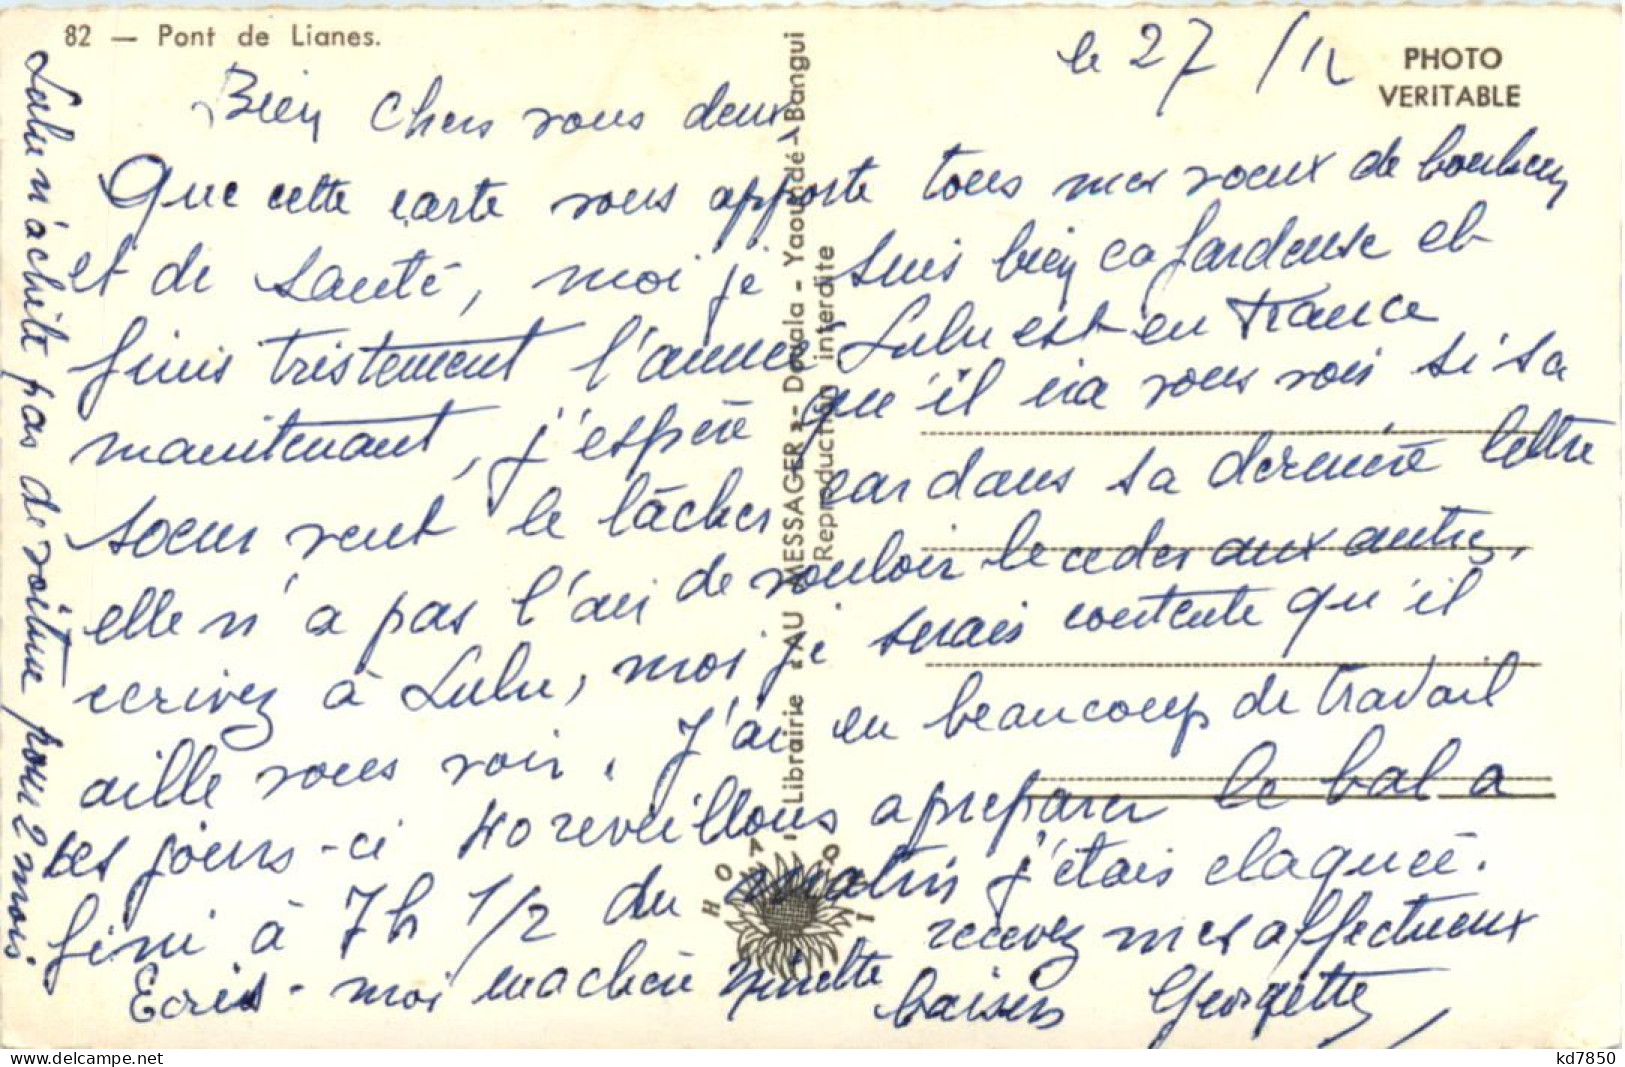 82 — Pont de Lianes.
PHOTO
VERITABLE
le 27 / 12
Bien chers vous deux
Que cette carte vous apporte tous mes voeux de bonheur
et de santé, moi je suis bien cafardeuse et
finis tristement l'année, Lulu est en France
maintenant, j'espère qu'il ira vous voir si sa
soeur veut le lâcher car dans sa dernière lettre
elle n'a pas l'air de vouloir le ceder aux autres,
ecrivez à Lulu, moi je serais contente qu'il
aille vous voir. J'ai eu beaucoup de travail
ces jours-ci 40 reveillons a preparer le bal a
fini à 7h 1/2 du matin j'étais claquée.
Ecris-moi ma chère Ninette recevez mes affectueux
baisers Georgette
Lulu n'achète pas de voiture pour 2 mois
Librairie « AU MESSAGER » - Douala - Yaoundé - Bangui
Reproduction interdite
HOA-QUI
kd7850